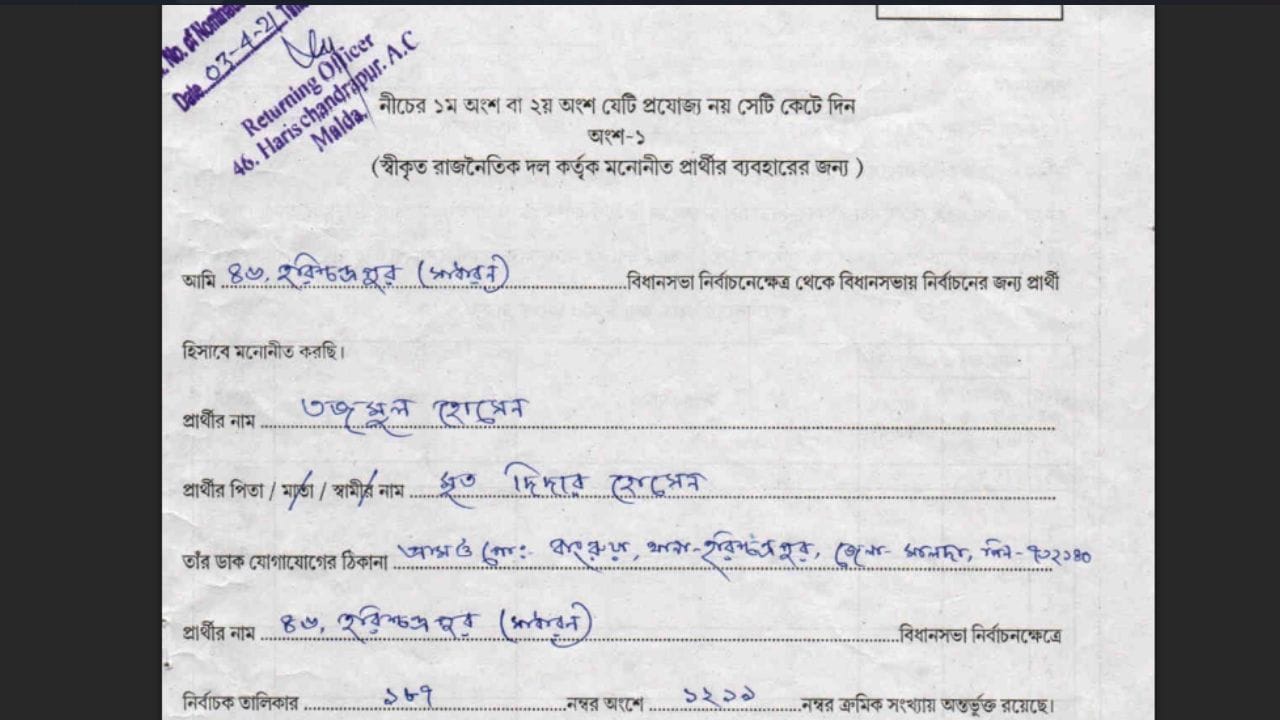 No. of Nomination
Date 03-4-21 Time
Returning Officer
46. Harischandrapur. A.C
Malda.
নীচের ১ম অংশ বা ২য় অংশ যেটি প্রযোজ্য নয় সেটি কেটে দিন
অংশ-১
(স্বীকৃত রাজনৈতিক দল কর্তৃক মনোনীত প্রার্থীর ব্যবহারের জন্য )
আমি ৪৬, হরিশ্চন্দ্রপুর (সাধারন) বিধানসভা নির্বাচনেক্ষেত্র থেকে বিধানসভায় নির্বাচনের জন্য প্রার্থী
হিসাবে মনোনীত করছি।
প্রার্থীর নাম তজমুল হোসেন
প্রার্থীর পিতা / মাতা / স্বামীর নাম মৃত দিদার হোসেন
তাঁর ডাক যোগাযোগের ঠিকানা গ্রাম ও পো:- বাংরুয়া, থানা-হরিশ্চন্দ্রপুর, জেলা- মালদা, পিন-৭৩২১৪০
প্রার্থীর নাম ৪৬, হরিশ্চন্দ্রপুর (সাধারন) বিধানসভা নির্বাচনক্ষেত্রে
নির্বাচক তালিকার ১৮৭ নম্বর অংশে ১২১১ নম্বর ক্রমিক সংখ্যায় অন্তর্ভুক্ত রয়েছে।